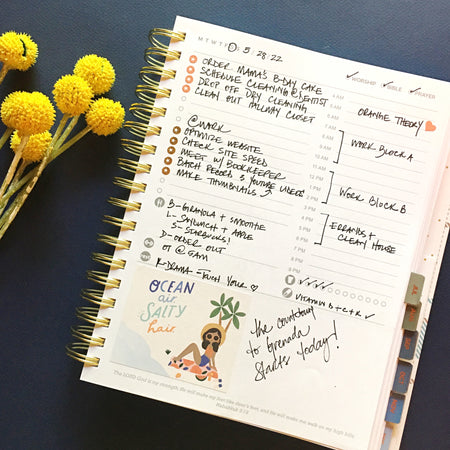 M T W T F S 5·28·22
✓ WORSHIP ✓ BIBLE ✓ PRAYER
ORDER MAMA'S B-DAY CAKE
SCHEDULE CLEANING @ DENTIST
DROP OFF DRY CLEANING
CLEAN OUT HALLWAY CLOSET
@WORK
OPTIMIZE WEBSITE
CHECK SITE SPEED
MEET W/ BOOKKEEPER
BATCH RECORD 3 YOUTUBE VIDEOS
MAKE THUMBNAILS
B-GRANOLA + SMOOTHIE
L- SANDWICH + APPLE
S- STARBUCKS!
D-ORDER OUT
OT @ 5AM
K-DRAMA - TOUCH YOUR ♡
5 AM
6 AM
7 AM
8 AM
9 AM
10 AM
11 AM
12 PM
1 PM
2 PM
3 PM
4 PM
5 PM
6 PM
7 PM
8 PM
ORANGE THEORY
WORK BLOCK A
WORK BLOCK B
ERRANDS +
CLEAN HOUSE
✓✓✓✓
VITAMIN B + C + K ✓
OCEAN
air
SALTY
hair
the countdown
to Grenada
starts today!
The LORD God is my strength; He will make my feet like deer's feet, and He will make me walk on my high hills.
Habakkuk 3:19